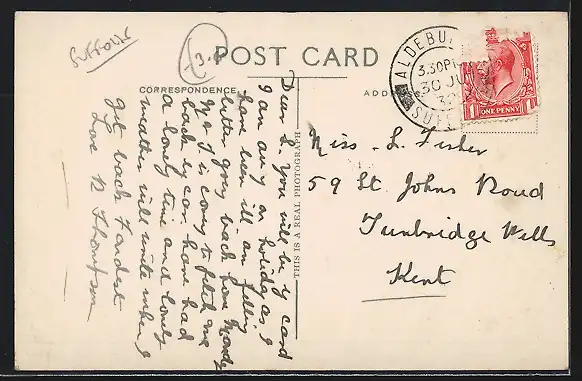 SUFFOLK
POST CARD
CORRESPONDENCE
ADD
ALDEBU
3.30PM
30 JU
SUFF
ONE PENNY
THIS IS A REAL PHOTOGRAPH
Dear L. You will be
card
I am away on holiday as I
have been ill am feeling
better going back home
I is coming to fetch me
back by car, have had
a lovely time and lovely
weather will write when I
get back
Love
Thompson
Miss. L. Fisher
59 St Johns Road
Tunbridge Wells
Kent